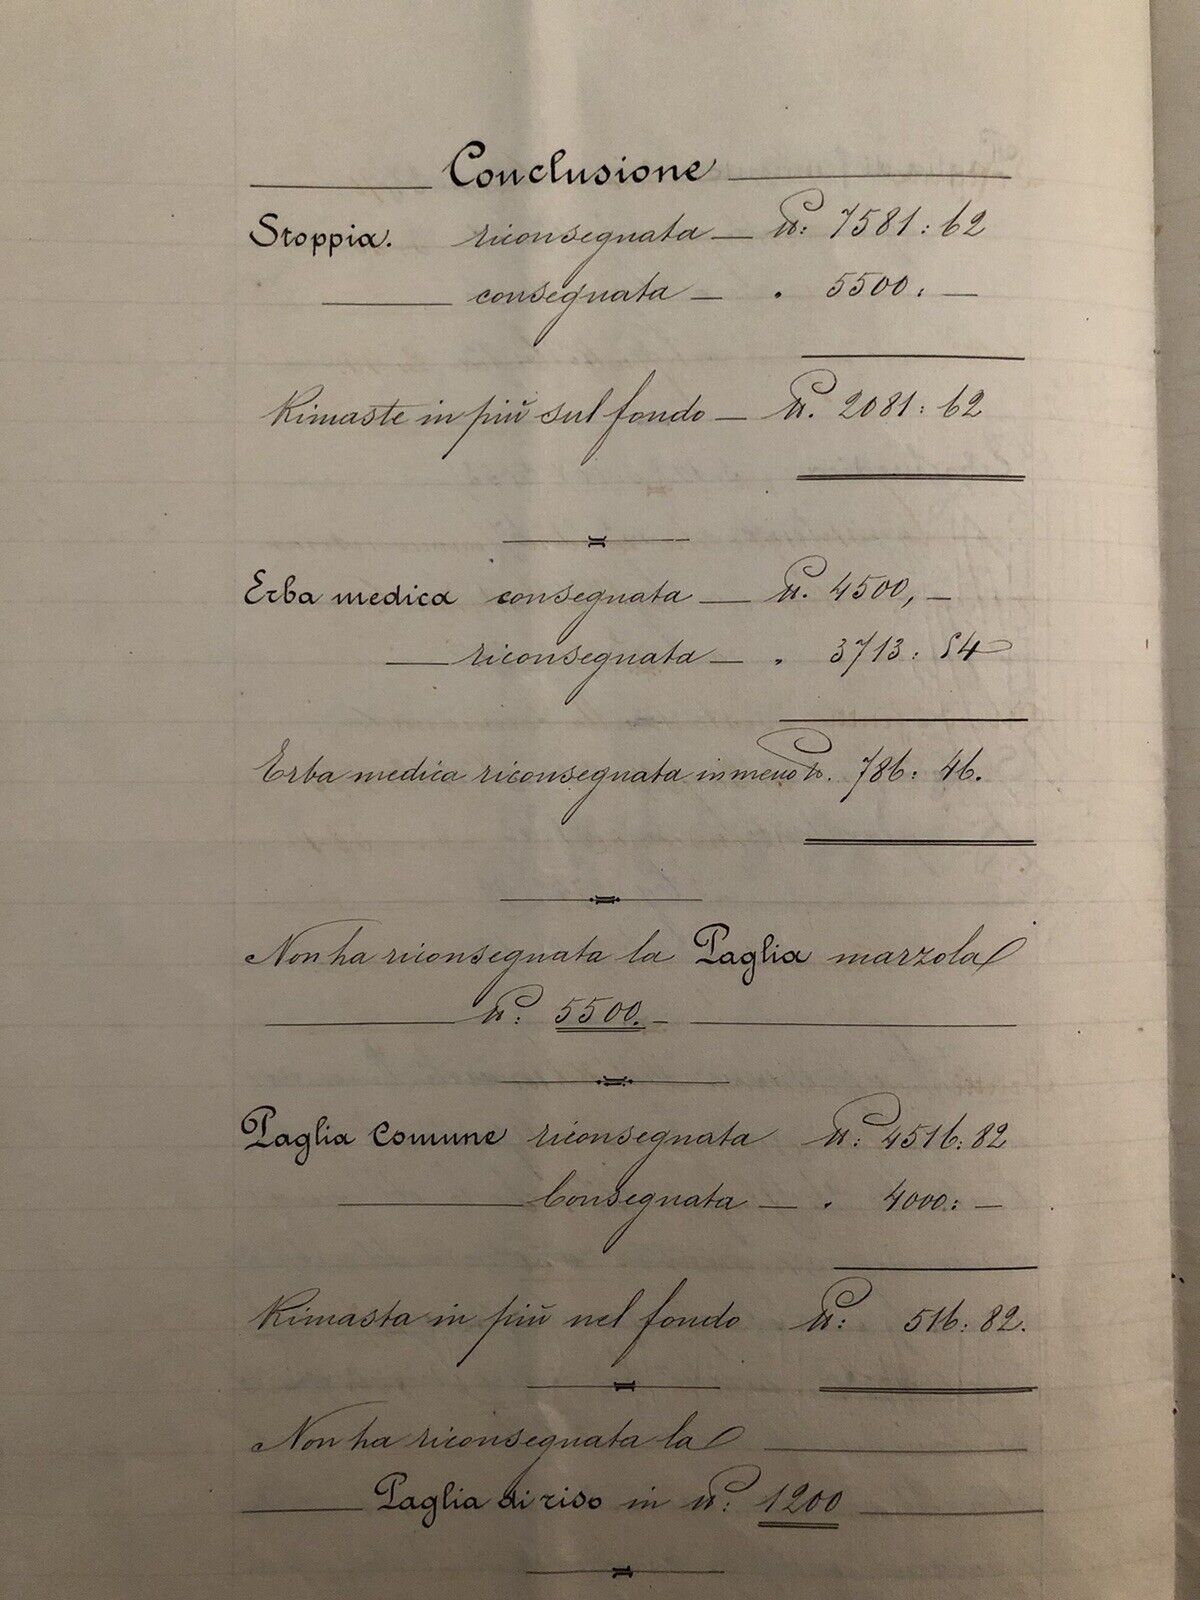 Conclusione
Stoppia. riconsegnata — ℔: 7581:62
consegnata — " 5500: —
Rimaste in più sul fondo — ℔. 2081:62
Erba medica consegnata — ℔. 4500, —
riconsegnata — " 3713:54
Erba medica riconsegnata in meno ℔. 786:46.
Non ha riconsegnata la Paglia marzola
℔: 5500. —
Paglia comune riconsegnata ℔: 4516:82
Consegnata — " 4000: —
Rimasta in più nel fondo ℔: 516:82.
Non ha riconsegnata la
Paglia di riso in ℔: 1200